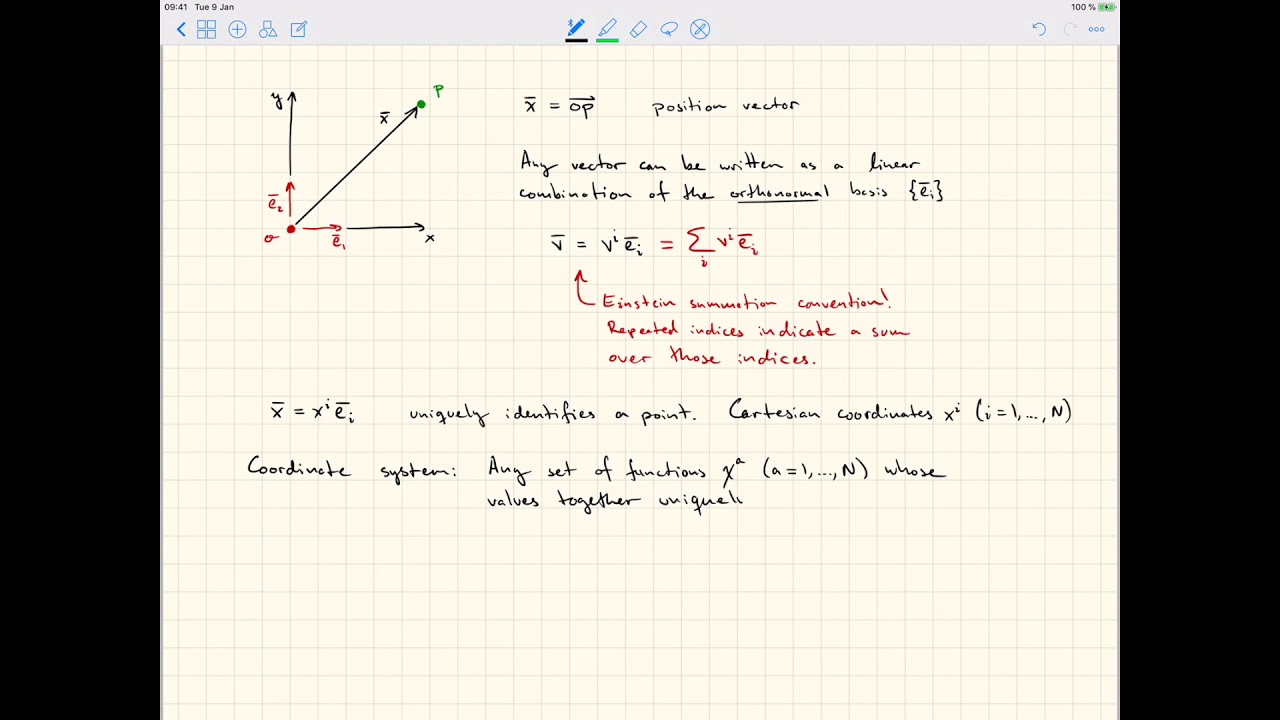 09:41 Tue 9 Jan
100 %
y
P
x̄
ē₂
o
ē₁
x
x̄ = op⃗ position vector
Any vector can be written as a linear
combination of the orthonormal basis {ēᵢ}
v̄ = vⁱ ēᵢ = ∑ᵢ vⁱ ēᵢ
Einstein summation convention!
Repeated indices indicate a sum
over those indices.
x̄ = xⁱ ēᵢ uniquely identifies a point. Cartesian coordinates xⁱ (i = 1, ..., N)
Coordinate system: Any set of functions χᵃ (a = 1, ..., N) whose
values together uniquel